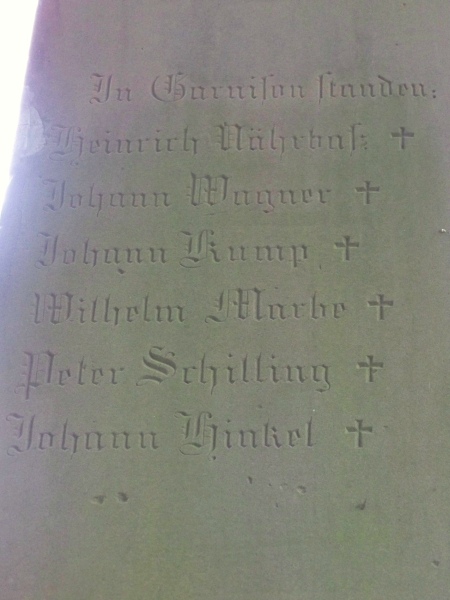 In Garnison standen:
Heinrich Nährbaß †
Johann Wagner †
Johann Kump †
Wilhelm Marbe †
Peter Schilling †
Johann Hinkel †